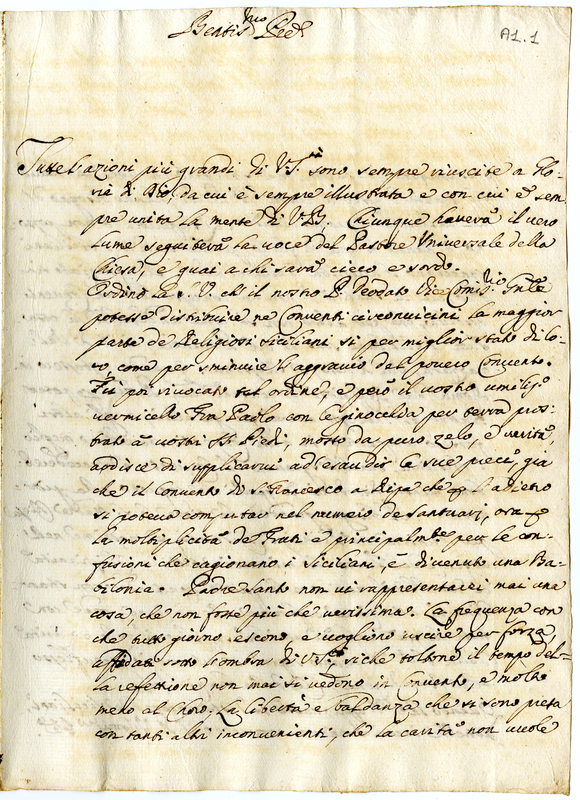 Beatis.mo Pad.e
A1.1
Tutte l'azioni più grandi di V.S.tà sono sempre riuscite a Glo-
ria di Dio, da cui è sempre illustrata e con cui è sem
pre unita la mente di V.B. Chiunque haverà il vero
lume seguiterà la voce del Pastore Universale della
Chiesa, e guai a chi sarà cieco e sordo.
Ordinò la S.V. ch'il nostro P. Deodato Vice Comis.rio Gn̄le
potesse distribuire ne Conventi circonvicini la maggior
parte de Religiosi siciliani sì per miglior stato di lo-
ro, come per sminuire l'aggravio del povero Convento.
Fù poi rivocato tal ordine, e però il vostro umiliss.o
vermicello Fra Paolo con le ginocchia per terra pros-
trato à vostri SS. Piedi, mosso da puro zelo, e verità,
ardisce di supplicarvi ad esaudir le sue preci, già
che il Convento di S. Francesco a Ripa che p l'adietro
si poteva computar nel numero de santuari, ora p
la moltiplicità de Frati e principalm.te per le con-
fusioni che cagionano i Siciliani, è divenuto una Ba-
bilonia. Padre Santo non vi rappresentarei mai una
cosa, che non fosse più che verissima. La frequenza con
che tutto giorno escono, e vogliono uscire per forza,
affidati sotto l'ombra di V.S.tà, siche toltone il tempo del-
la refettione non mai si vedono in Convento, e molto
meno al Choro. La libertà e baldanza che si sono presa
con tanti altri inconvenienti, che la carità non vuole